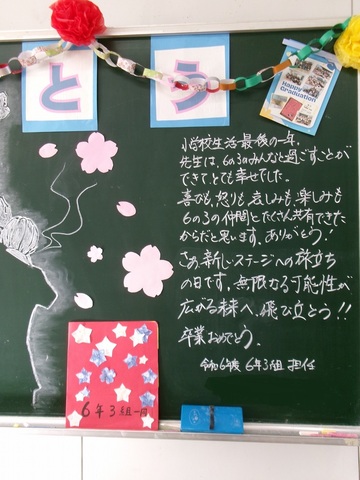 とう
Happy
Graduation
小学校生活最後の一年、
先生は、6の3のみんなと過ごすことが
できてとても幸せでした。
喜びも、怒りも、哀しみも、楽しみも
6の3の仲間とたくさん共有できた
からだと思います。ありがとう！
さあ、新しいステージへの旅立ち
の日です。無限なる可能性が
広がる未来へ、飛び立とう！！
卒業おめでとう。
令和6年度 6年3組 担任
6年3組一同